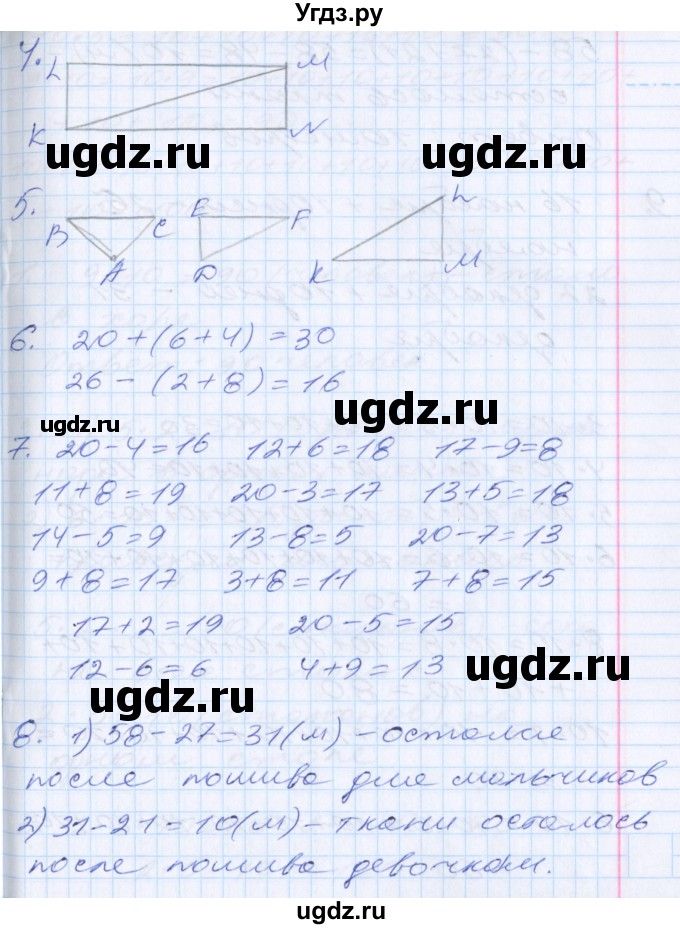 Угдз.ру
4. L M
K N
ugdz.ru ugdz.ru
5. B C E F L
A D K M
6. 20+(6+4)=30
26-(2+8)=16
ugdz.ru
ugdz.ru
7. 20-4=16 12+6=18 17-9=8
11+8=19 20-3=17 13+5=18
14-5=9 13-8=5 20-7=13
9+8=17 3+8=11 7+8=15
17+2=19 20-5=15
12-6=6 4+9=13
ugdz.ru
ugdz.ru
8. 1) 58-27=31(м)-осталось
после пошива для мальчиков
2) 31-21=10(м)-ткани осталось
после пошива девочкам.
ugdz.ru